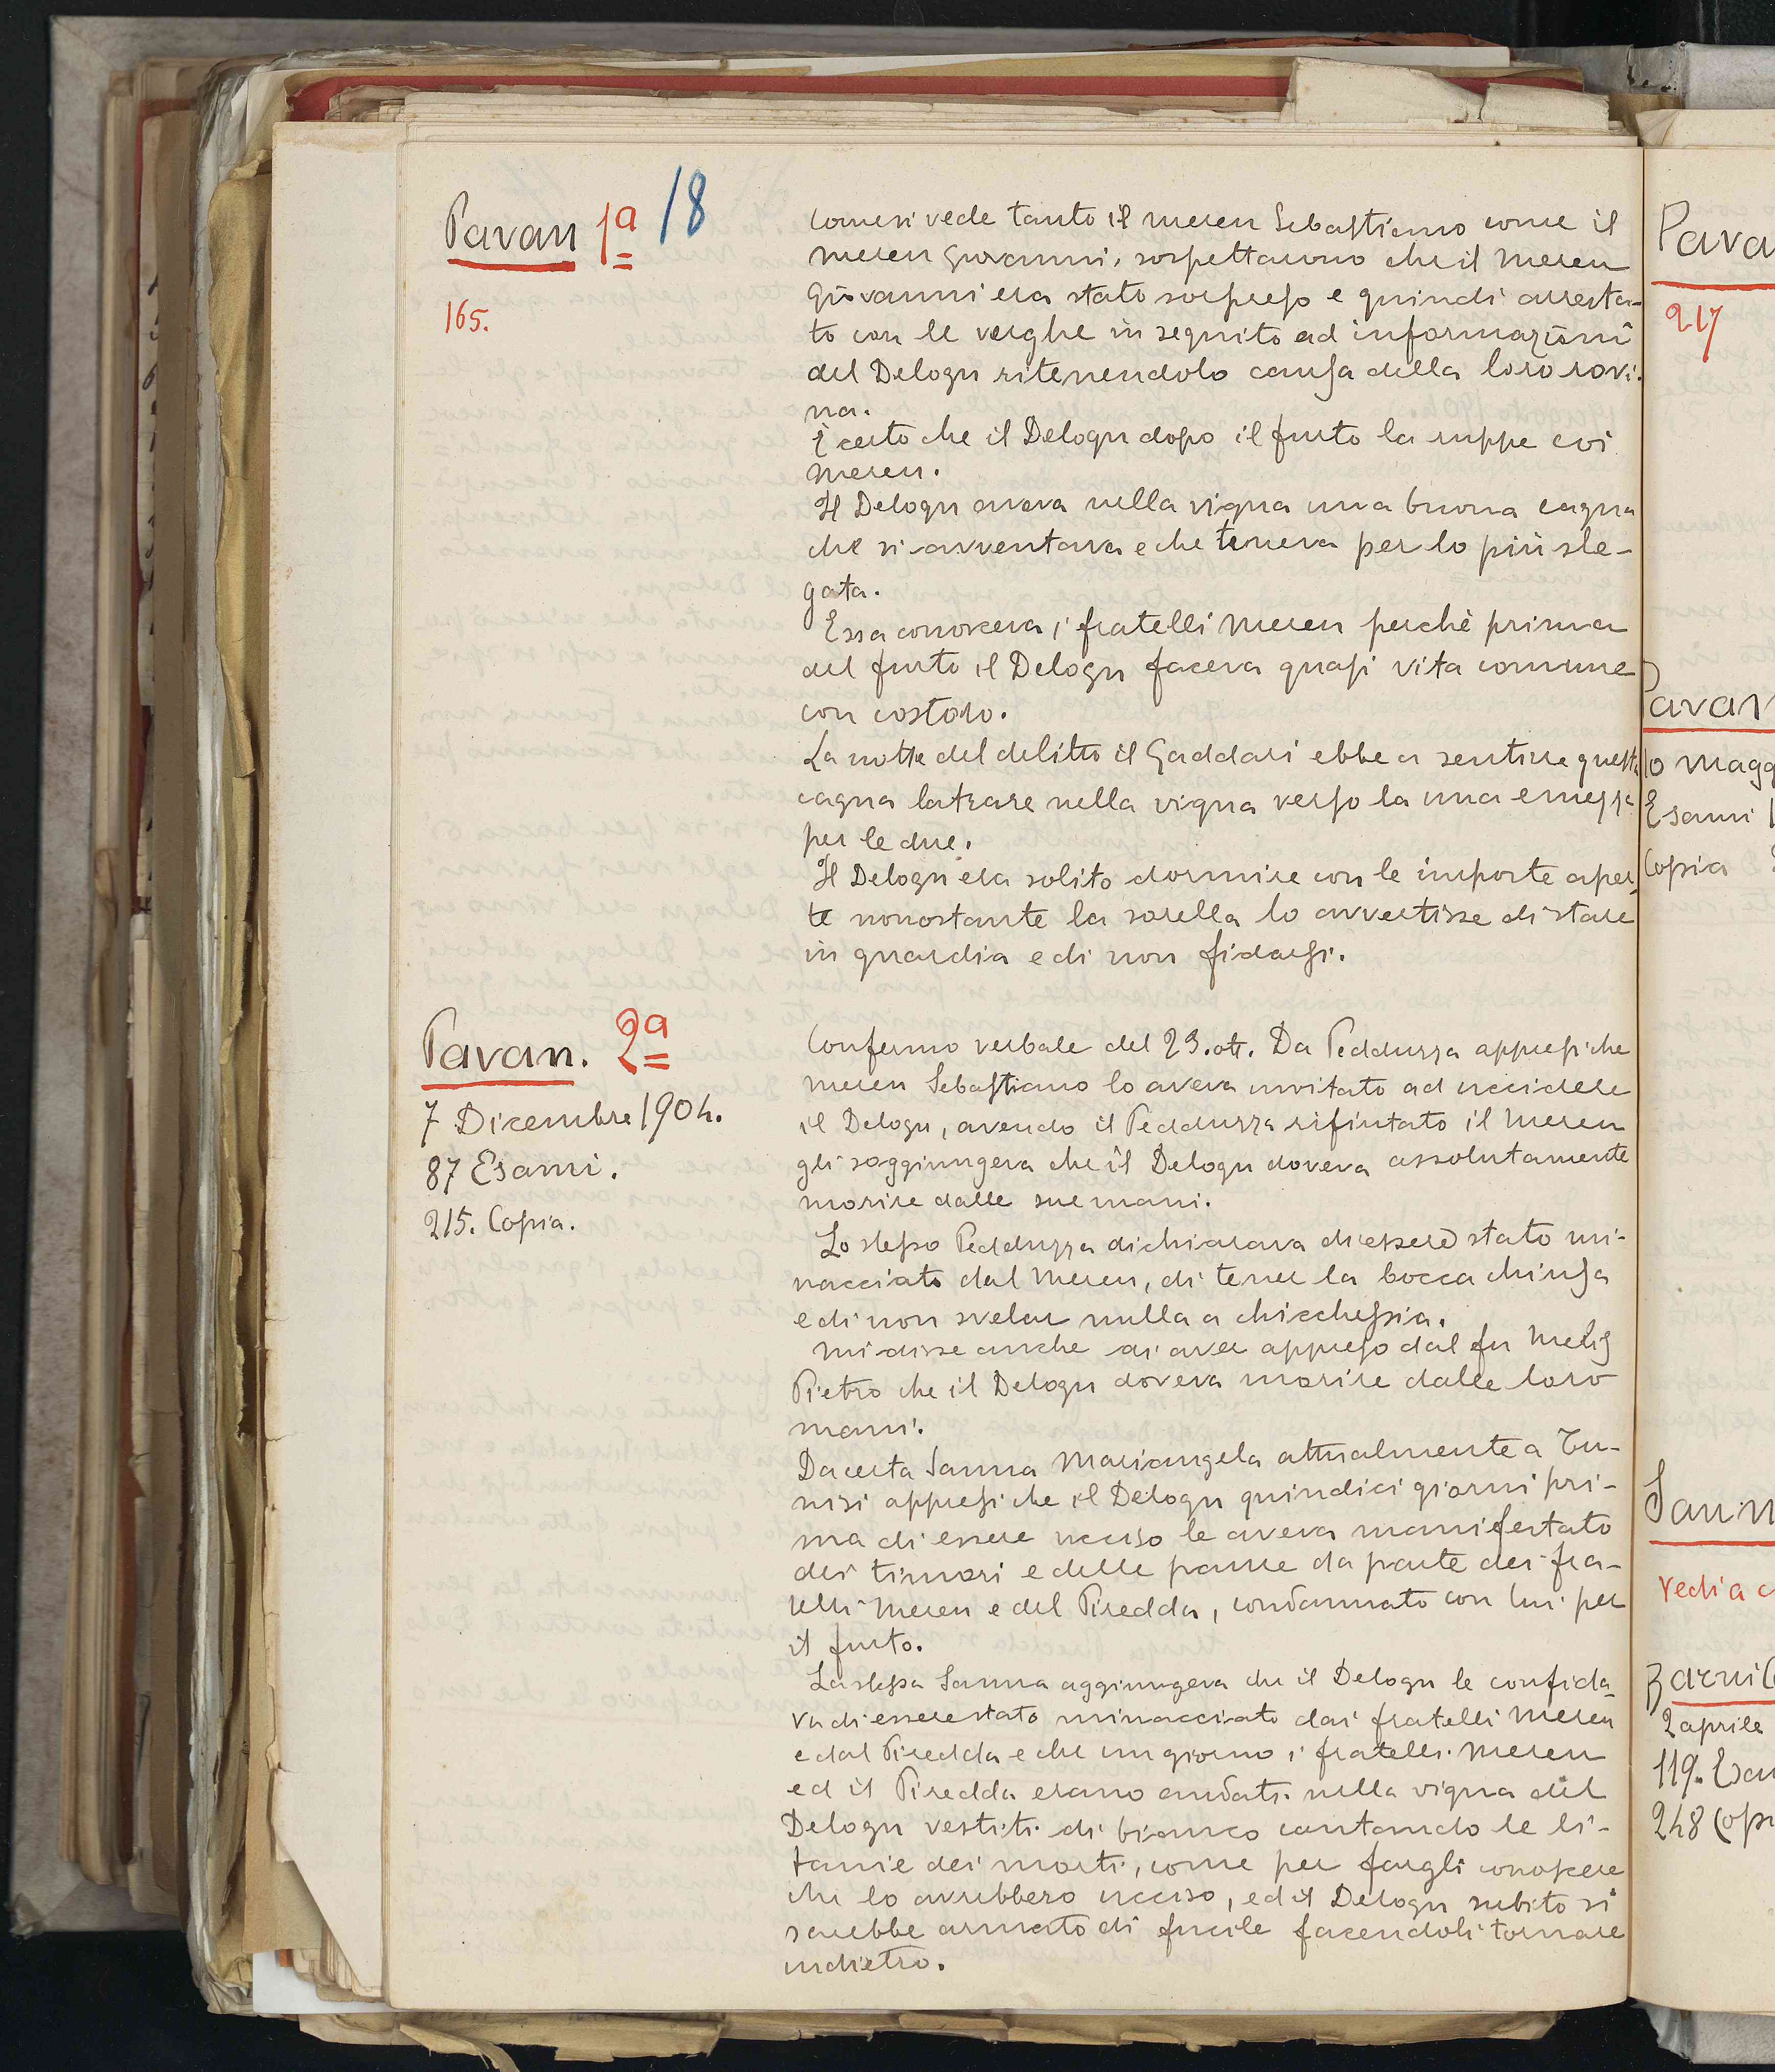 Pavan 1ª 18
165.
Come si vede tanto il Mereu Sebastiano come il
Mereu Giovanni, sospettarono che il Mereu
Giovanni era stato sorpreso e quindi arresta-
to con le verghe in seguito ad informazioni
del Delogu ritenendolo causa della loro rovi-
na.
È certo che il Delogu dopo il furto la ruppe coi
Mereu.
Il Delogu aveva nella vigna una buona cagna
che si avventava e che teneva per lo più sle-
gata.
Essa conosceva i fratelli Mereu perchè prima
del furto il Delogu faceva quasi vita comune
con costoro.
La notte del delitto il Gaddari ebbe a sentire questa
cagna latrare nella vigna verso la una e mezza
per le due.
Il Delogu era solito dormire con le imposte aper-
te nonostante la sorella lo avvertisse di stare
in guardia e di non fidarsi.
Pavan. 2ª
7 Dicembre 1904.
87 Esami.
215. Copia.
Confermo verbale del 23. ott. Da Pedduzza appresi che
Mereu Sebastiano lo aveva invitato ad uccidere
il Delogu, avendo il Pedduzza rifiutato il Mereu
gli soggiungeva che il Delogu doveva assolutamente
morire dalle sue mani.
Lo stesso Pedduzza dichiarava di essere stato mi-
nacciato dal Mereu, di tener la bocca chiusa
e di non svelar nulla a chicchessia.
Mi disse anche di aver appreso dal fu Melis
Pietro che il Delogu doveva morire dalle loro
mani.
Da certa Sanna Mariangela attualmente a Tu-
nisi appresi che il Delogu quindici giorni pri-
ma di essere ucciso le aveva manifestato
dei timori e delle paure da parte dei fra-
telli Mereu e del Piredda, condannato con lui per
il furto.
La stessa Sanna aggiungeva che il Delogu le confida-
va di essere stato minacciato dai fratelli Mereu
e dal Piredda e che un giorno i fratelli Mereu
ed il Piredda erano andati nella vigna del
Delogu vestiti di bianco cantando le li-
tanie dei morti, come per fargli conoscere
che lo avrebbero ucciso, ed il Delogu subito si
sarebbe armato di fucile facendoli tornare
indietro.
Pava
217
Pavan
10 Magg
Esami
Copia
Sann
Vedi a c
2 aprile
119. Esa
248 Copi